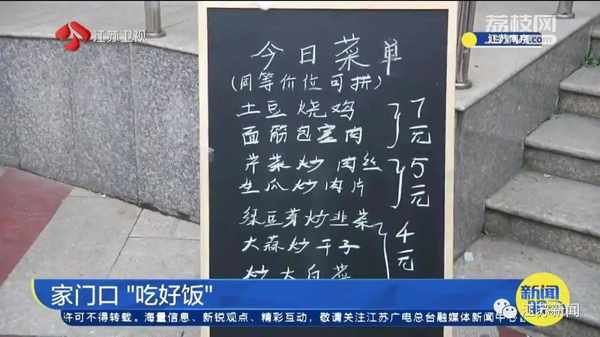 江苏卫视
荔枝网
江苏南京
今日菜单
(同等价位可拼)
土豆烧鸡
面筋包塞肉
7元
芹菜炒肉丝
生瓜炒肉片
5元
绿豆芽炒韭菜
大蒜炒干子
炒大白菜
4元
家门口 "吃好饭"
新闻
许可不得转载。海量信息、新锐观点、精彩互动，敬请关注江苏广电总台融媒体新闻中
江苏新闻